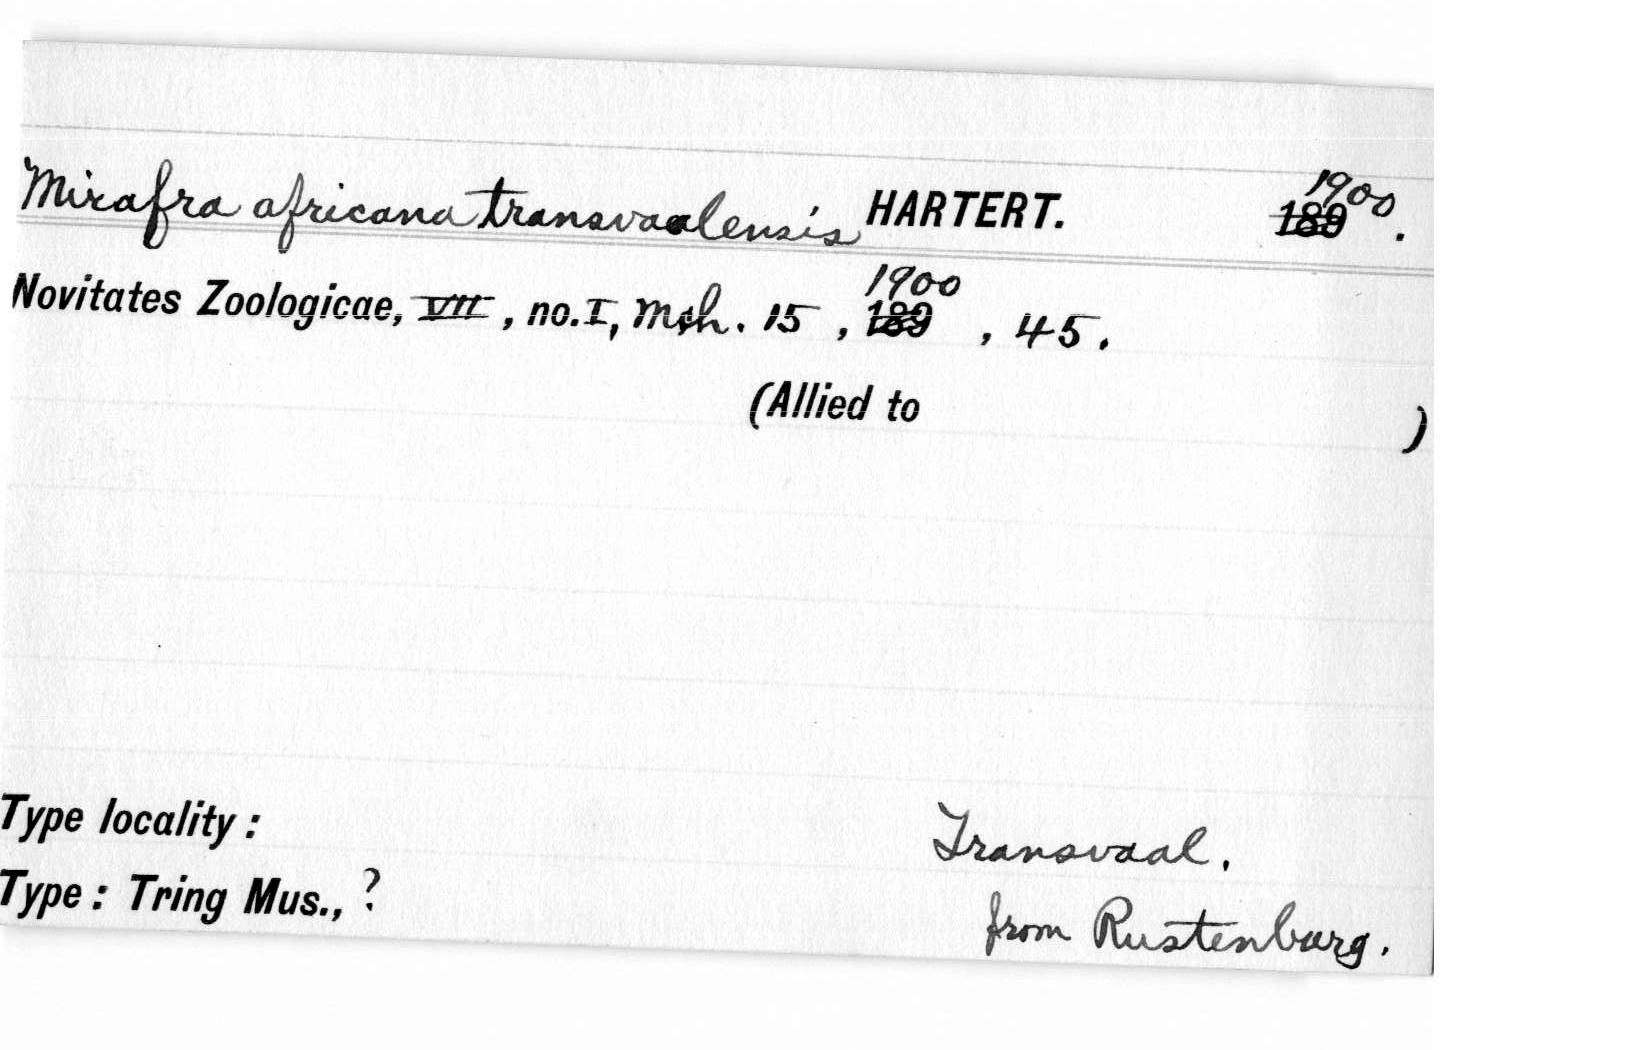 Mirafra africana transvaalensis HARTERT. 189 1900.
Novitates Zoologicae, VII, no. I, Mch. 15, 189 1900, 45.
(Allied to )
Type locality: Transvaal.
Type: Tring Mus., ? from Rustenburg.